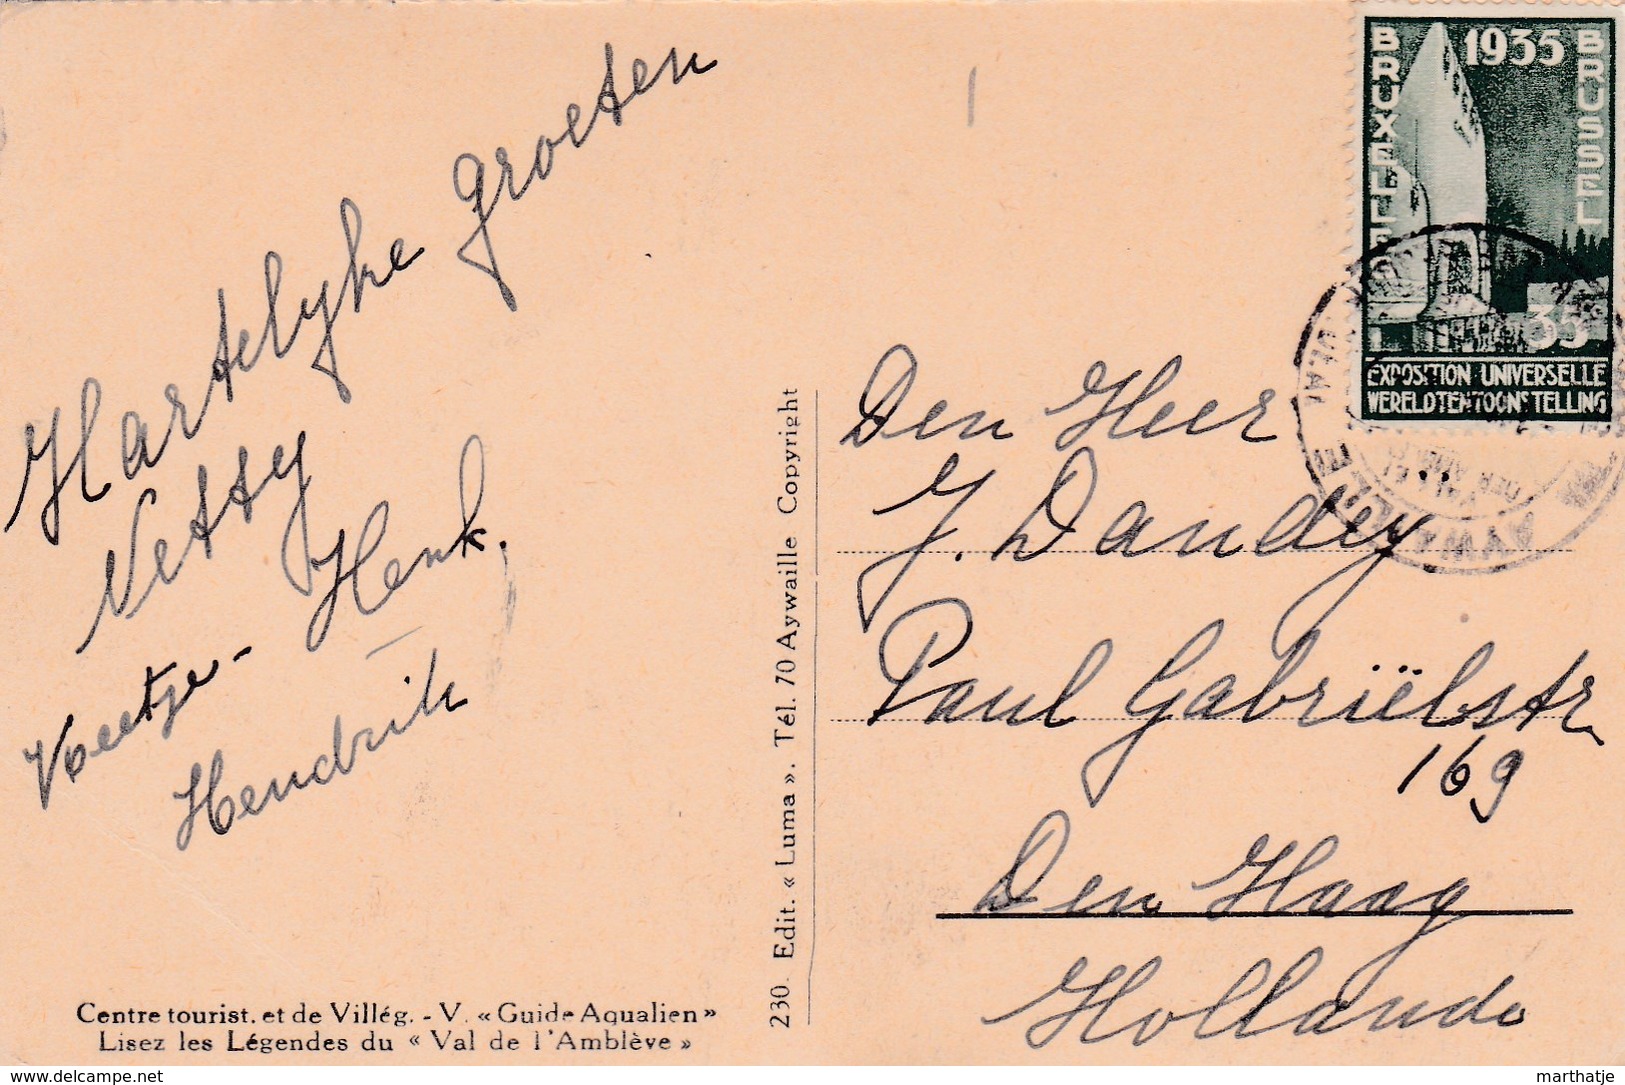 Hartelyke groeten
Netty
Keetje - Henk.
Hendrik
Centre tourist. et de Villég. - V. « Guide Aqualien »
Lisez les Légendes du « Val de l'Amblève »
230. Edit. « Luma ». Tél. 70 Aywaille Copyright
1935
BRUXELLES
BRUSSEL
35
EXPOSITION UNIVERSELLE
WERELDTENTOONSTELLING
Den Heer
J. Dandey
Paul Gabriëlstr
169
Den Haag
Hollande
delcampe.net
marthatje